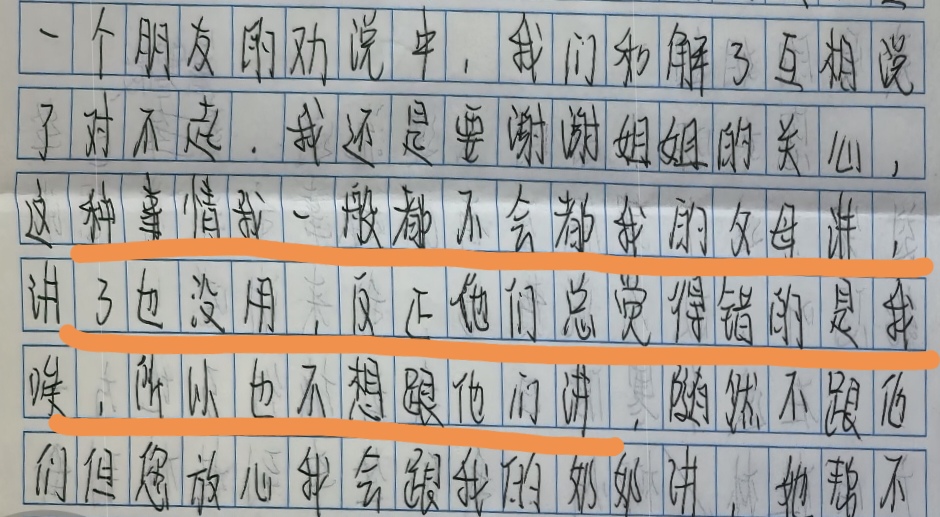 一个朋友的劝说中，我们和解了互相说
了对不起．我还是要谢谢姐姐的关心，
这种事情我一般都不会都我的父母讲，
讲了也没用，反正他们总觉得错的是我
唉，所以也不想跟他们讲，随然不跟他
们但您放心我会跟我的奶奶讲，她帮不